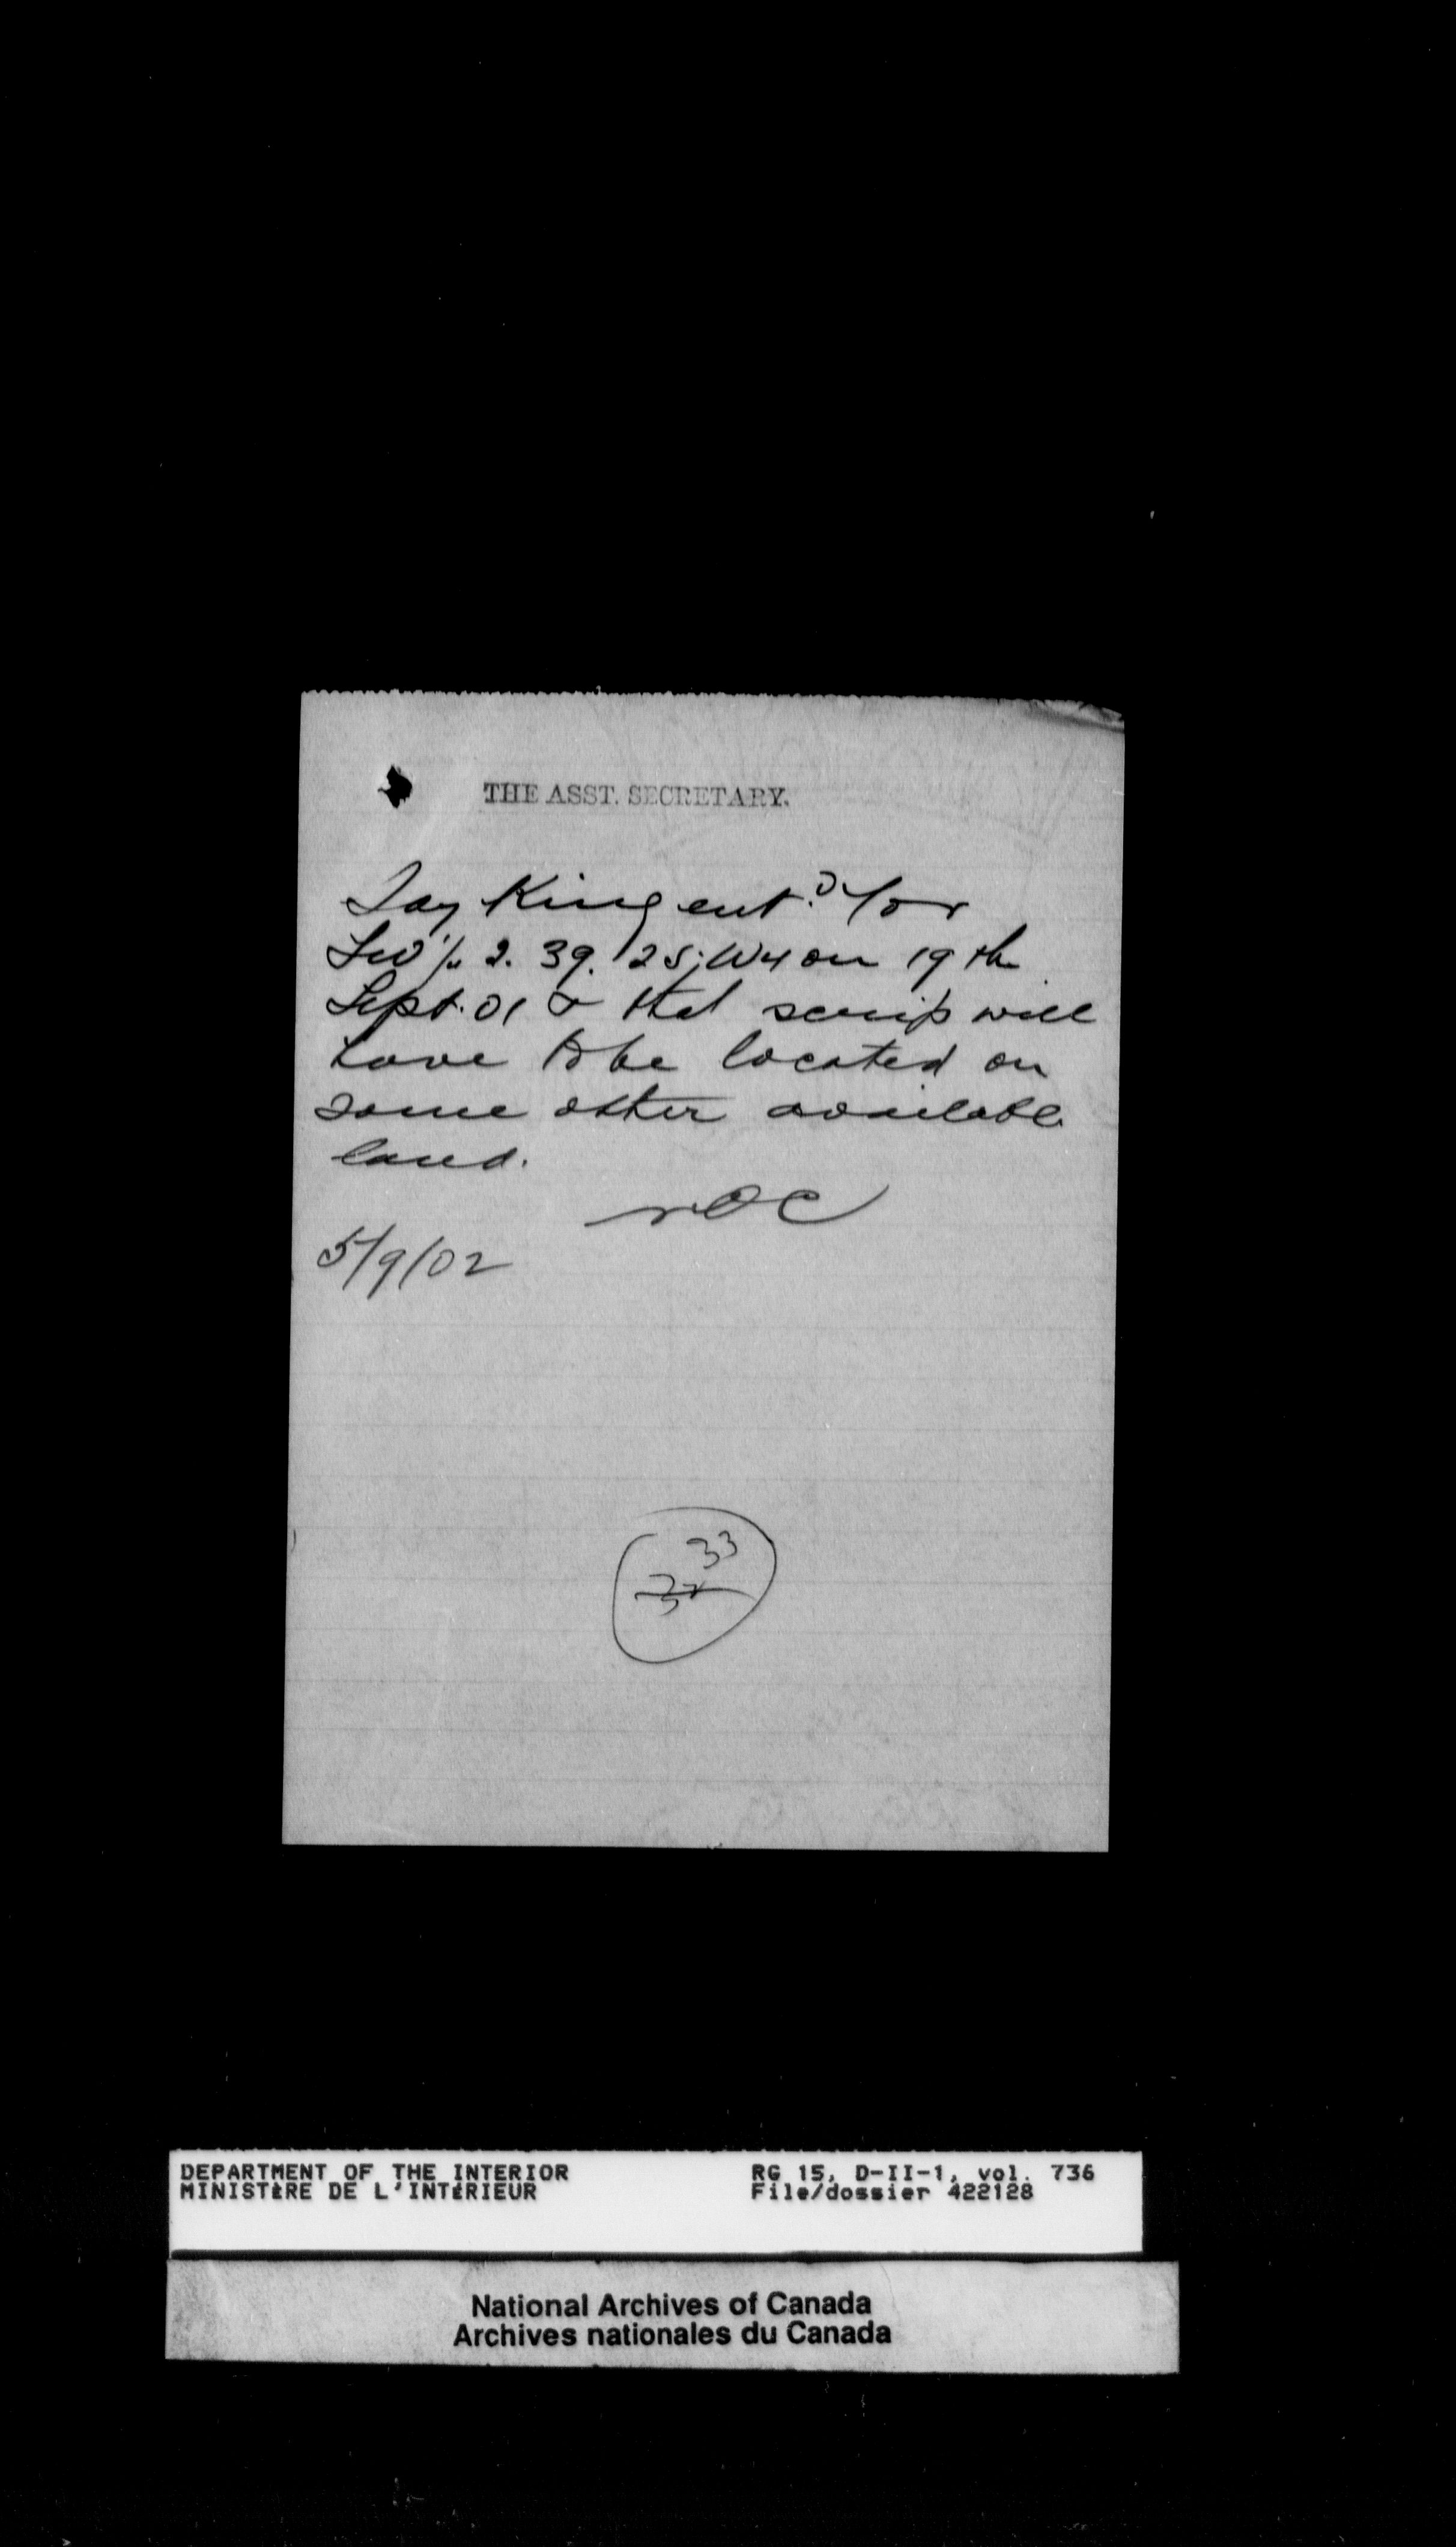 THE ASST. SECRETARY.
Say King ent.d for
SW ¼ 2. 39. 25; W4 on 19th
Sept. 01 & that scrip will
have to be located on
some other available
land.
5/9/02
33
32
DEPARTMENT OF THE INTERIOR
MINISTÈRE DE L'INTÉRIEUR
RG 15, D-II-1, vol. 736
File/dossier 422128
National Archives of Canada
Archives nationales du Canada